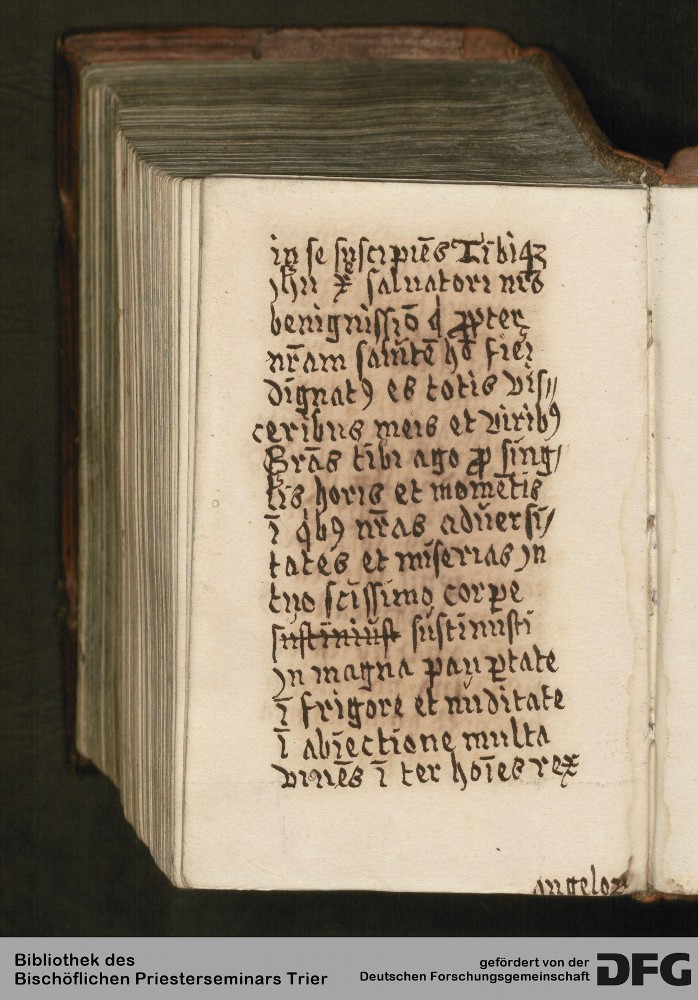 in se suscipiēs Tibiqz
Jhū xp̄e saluatori nr̄o
benignissīō q̇ ꝓpter
nr̄am salutē hō fiei
dignatꝰ es totis vis//
ceribus meis et viribꝰ
Grās tibi ago ꝓ sing/
lis horis et momētis
ī q̇bꝰ nr̄as aduersi/
tates et miserias Jn
tuo scīssimo corꝑe
sustiniust sustinusti
Jn magna pauꝑtate
ī frigore et nuditate
ī abiectione multa
viuēs ī ter hoīes rex
angeloꝝ
Bibliothek des
Bischöflichen Priesterseminars Trier
gefördert von der
Deutschen Forschungsgemeinschaft DFG